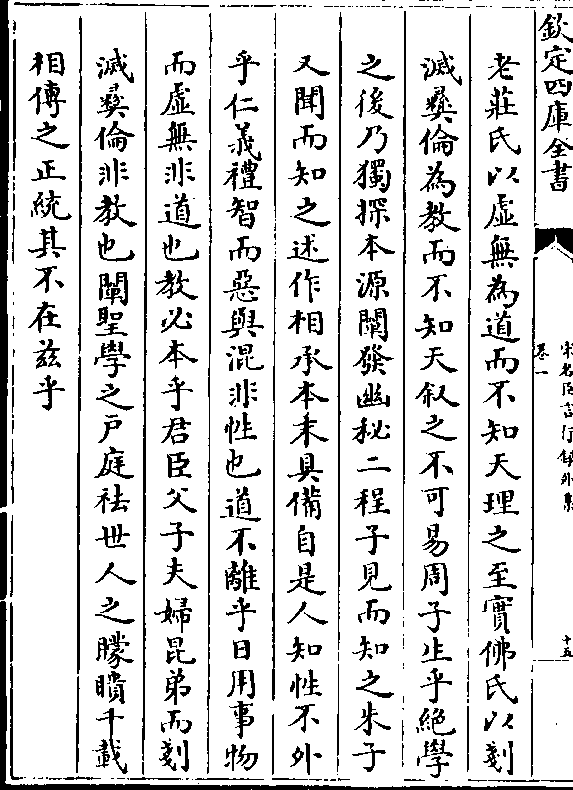 欽定四庫全書
宋名臣言行錄外集
卷一
十五
老莊氏以虛無為道而不知天理之至實佛氏以刻
滅彞倫為教而不知天叙之不可易周子生乎絶學
之後乃獨探本源闡發幽秘二程子見而知之朱子
又聞而知之述作相承本末具備自是人知性不外
乎仁義禮智而惡與混非性也道不離乎日用事物
而虛無非道也教必本乎君臣父子夫婦昆弟而刻
滅彞倫非教也闡聖學之户庭袪世人之矇瞶千載
相傳之正統其不在兹乎